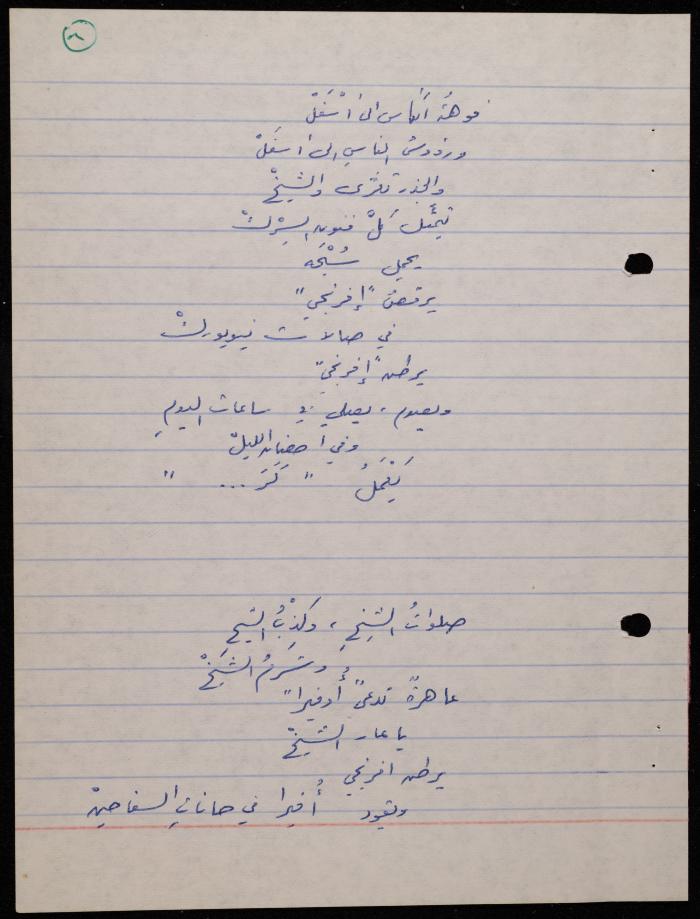 ٨
فوهةُ الكاس الى أسْفَلْ
ورؤوسُ الناسِ الى أسفَلْ
والجذر تعرّى والشيخْ
يتمثَّل كلَّ فنون السِرْكْ
يحمل سُبْحَه
يرقصُ "إفرنجي"
في صالات نيويوركْ
يرطن "إفرنجي"
ويصوم، يصلي في ساعات اليومِ
وفي أحضان الليلْ
يَعْمَلُ " كَـ ... "
صلواتُ الشيخِ، وكِذْبُ الشيخِ
وشرفُ الشَيْخْ
عاهرةٌ تدعى "أوفيرا"
يا عار الشيخْ
يرطن افرنجي
ويقود أُفيرا في حانات السفاحينْ